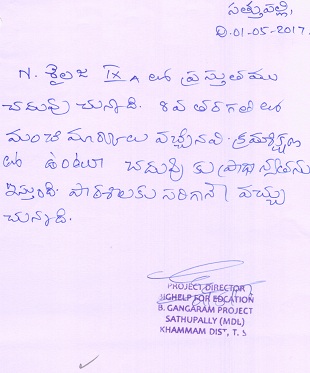 సత్తుపల్లి,
ది.01-05-2017.
N. శైలజ IX A లో ప్రస్తుతము
చదువు చున్నాది. 8వ తరగతి లో
మంచి మార్కులు వచ్చినవి. క్రమశిక్షణ
లో ఉంటూ చదువు కు ప్రాధాన్యతను
ఇస్తుంది. పాఠశాలకు సరిగానే వచ్చు
చున్నాది.
PROJECT DIRECTOR
HIGHELP FOR EDCATION
B. GANGARAM PROJECT
SATHUPALLY (MDL)
KHAMMAM DIST, T. S